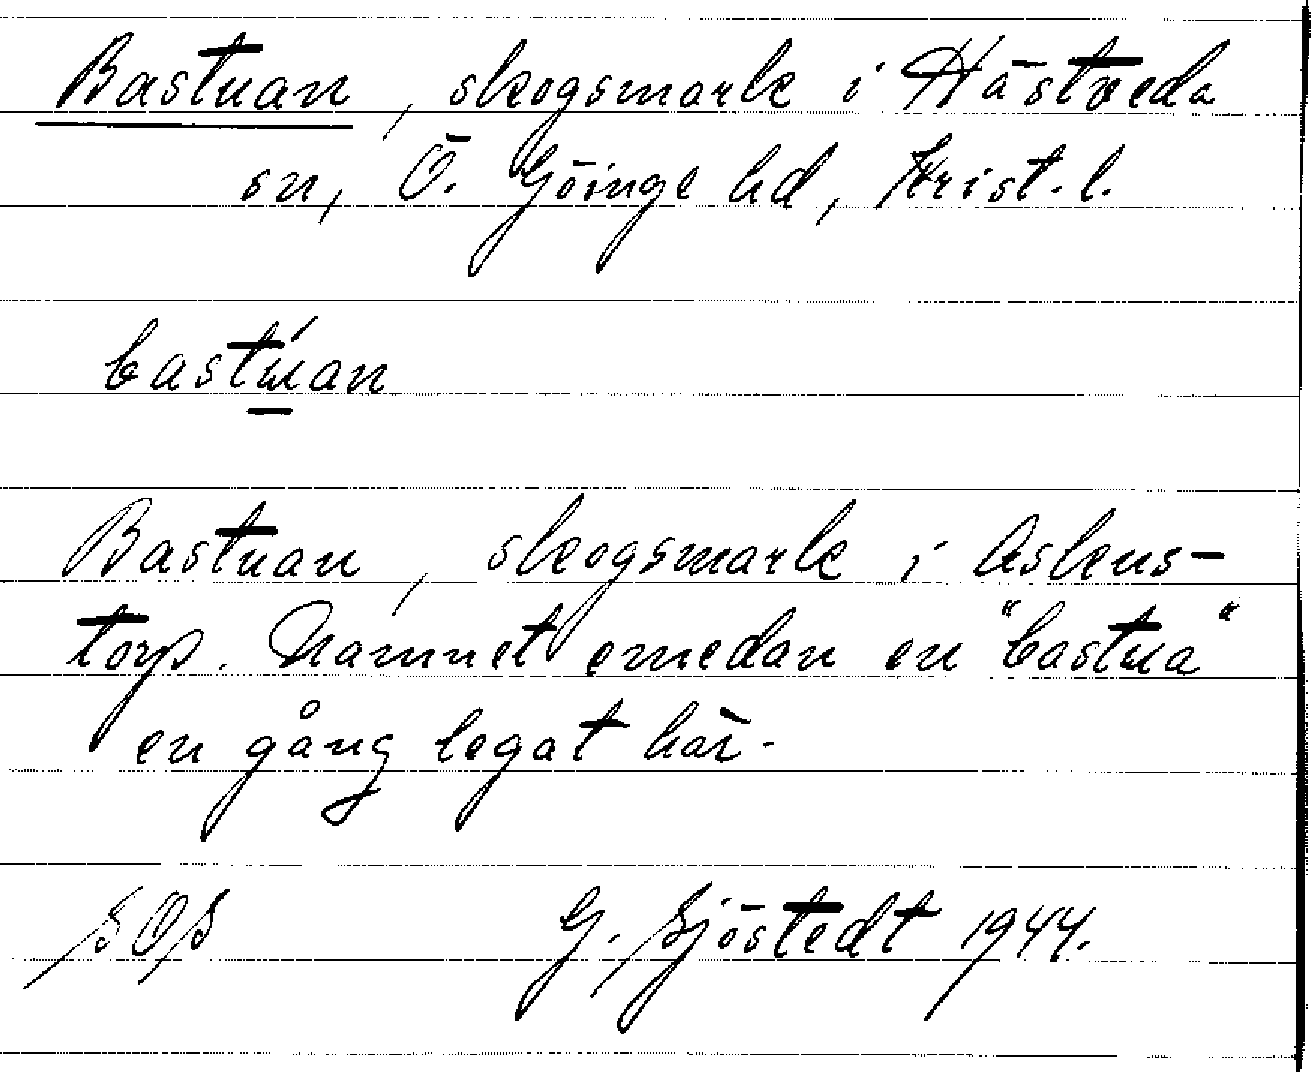 Bastuan, skogsmark i Hästveda
sn, Ö. Göinge hd, Krist. l.
bastúan
Bastuan, skogsmark i Askens-
torp. Namnet emedan en "bastua"
en gång legat här.
SOS G. Sjöstedt 1944.